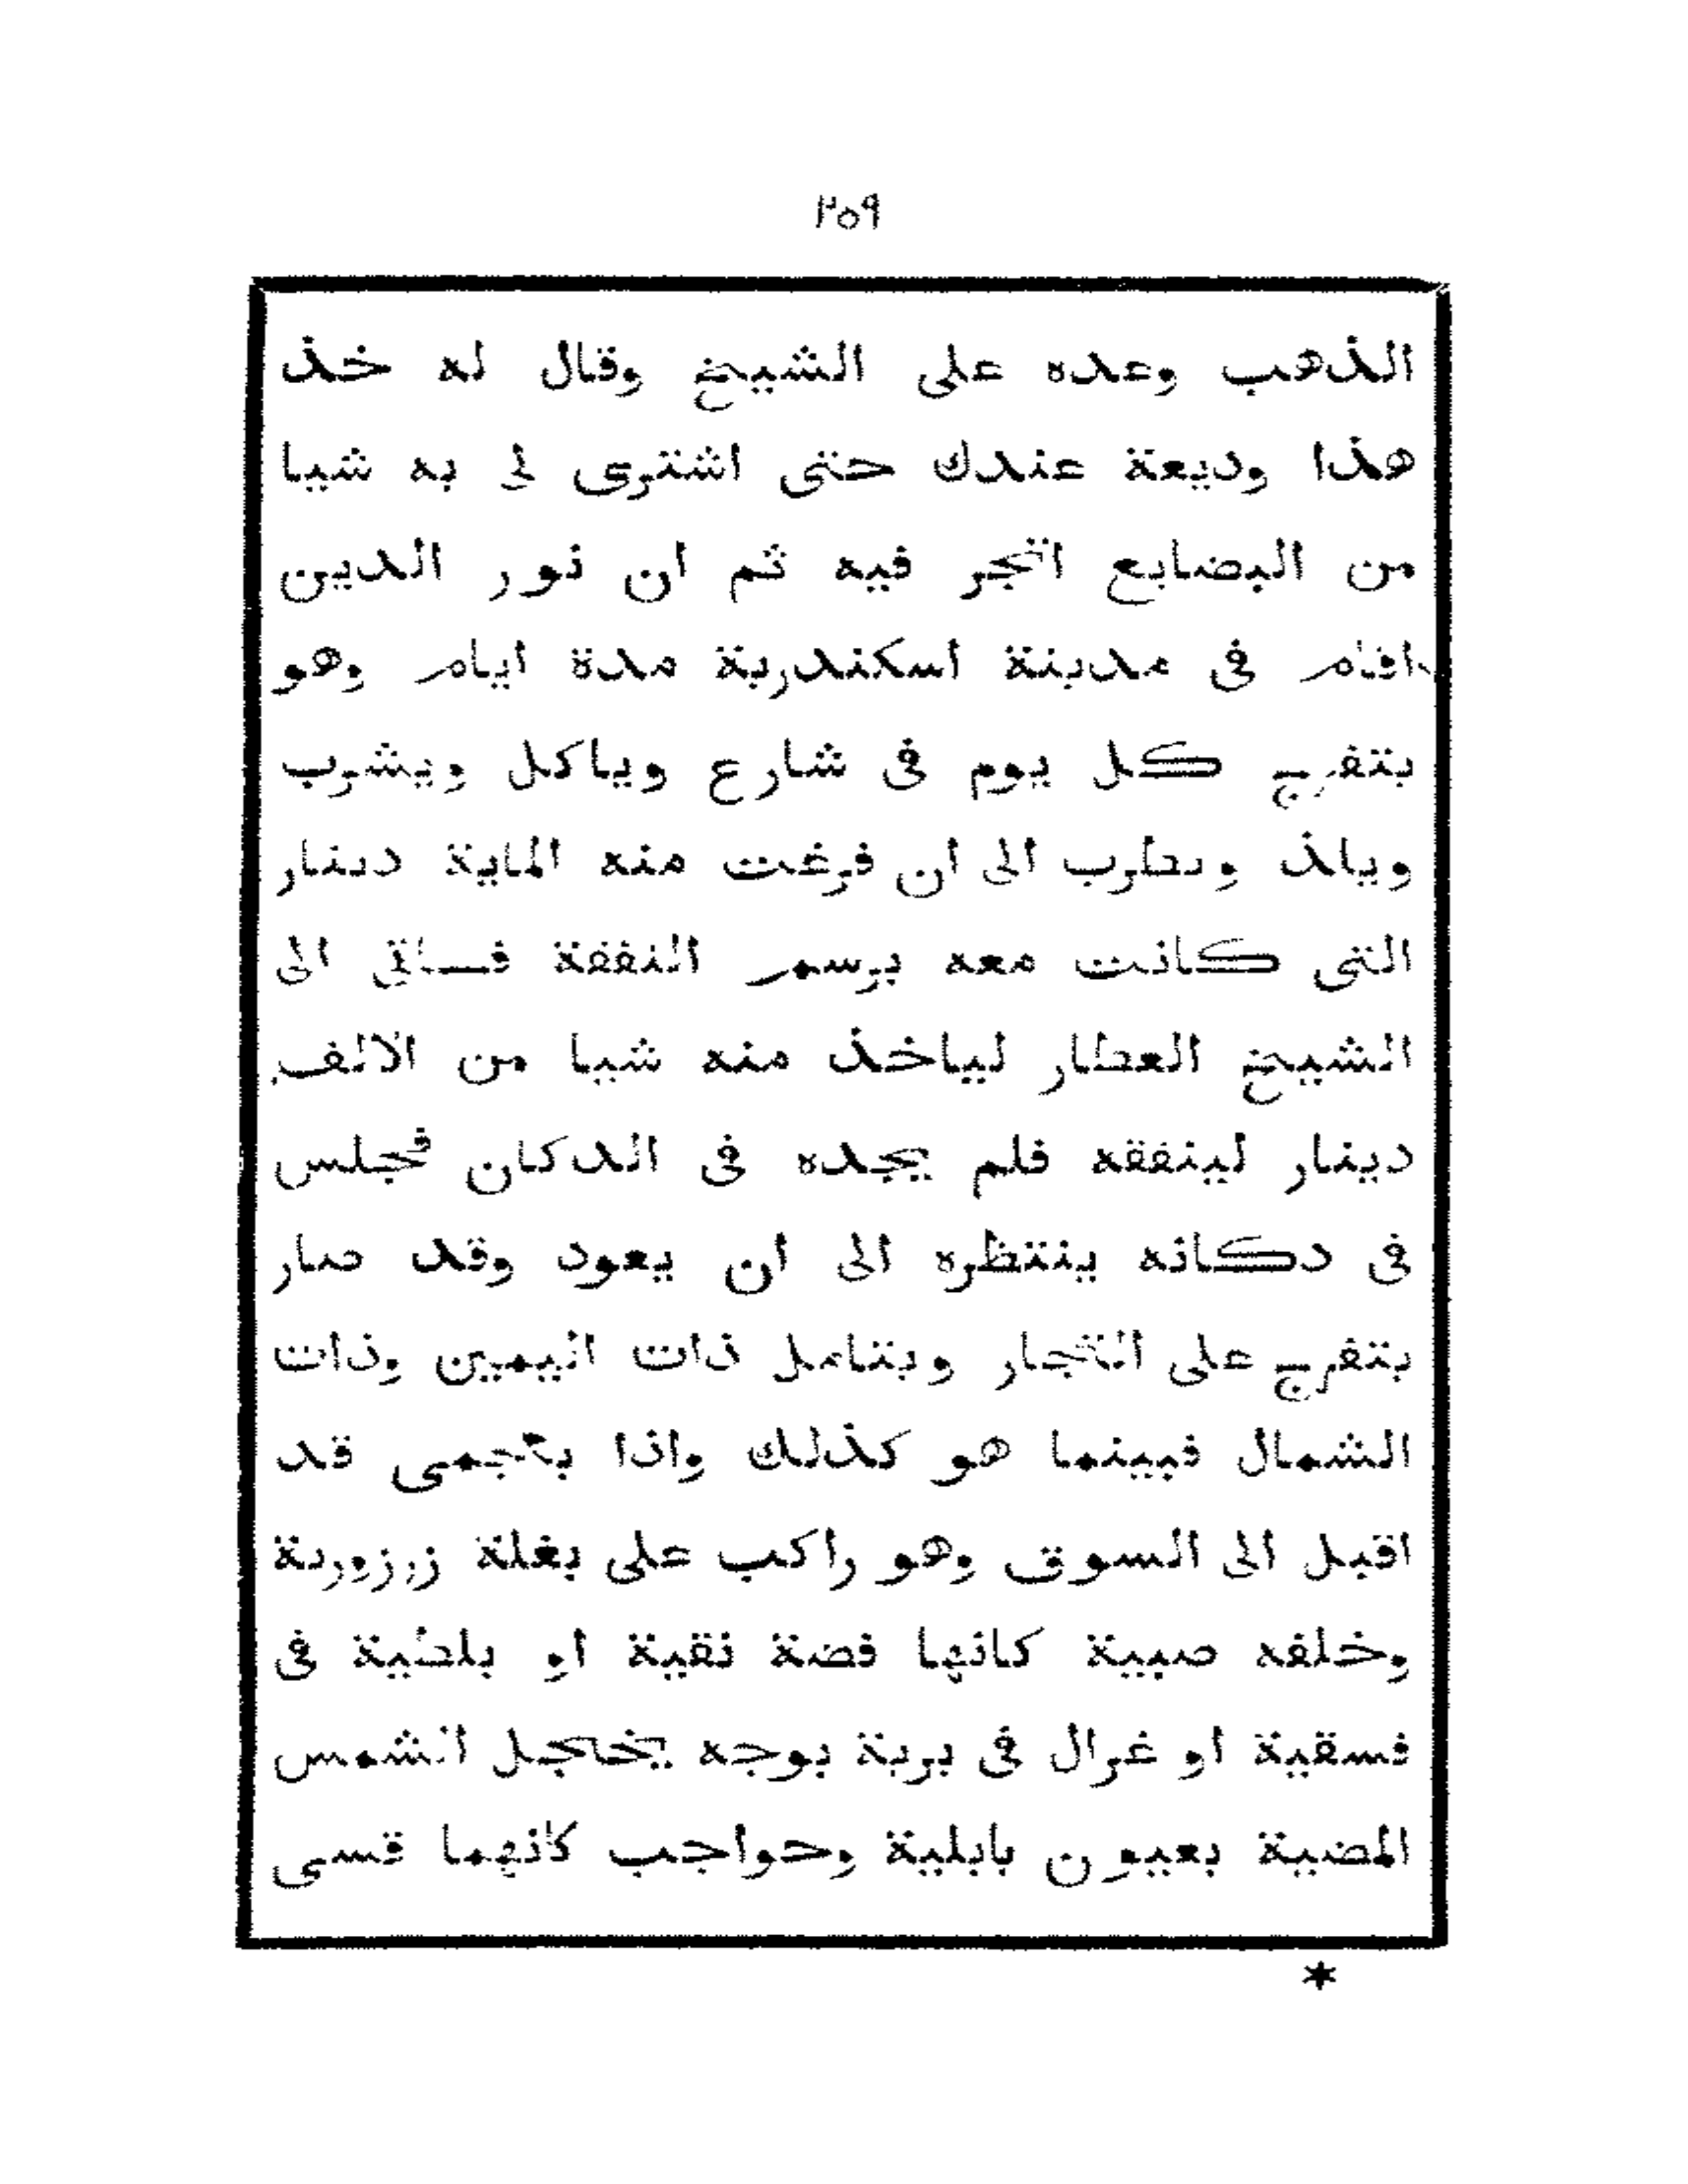 ٢٥٩
الذهب وعده على الشيخ وقال له خذ
هذا وديعة عندك حتى اشترى لى به شيا
من البضايع اتجر فيه ثم ان نور الدين
اقام فى مدينة اسكندرية مدة ايام وهو
يتفرج كل يوم فى شارع وياكل ويشرب
ويلذ ويطرب الى ان فرغت منه الماية دينار
التى كانت معه برسم النفقة فساق الى
الشيخ العطار لياخذ منه شيا من الالف
دينار لينفقه فلم يجده فى الدكان فجلس
فى دكانه ينتظره الى ان يعود وقد صار
يتفرج على التجار ويتامل ذات اليمين وذات
الشمال فبينما هو كذلك واذا بعجمى قد
اقبل الى السوق وهو راكب على بغلة زرزورية
وخلفه صبية كانها فضة نقية او بلطية فى
فسقية او غزال فى برية بوجه يخجل الشمس
المضية بعيون بابلية وحواجب كانهما قسى
*